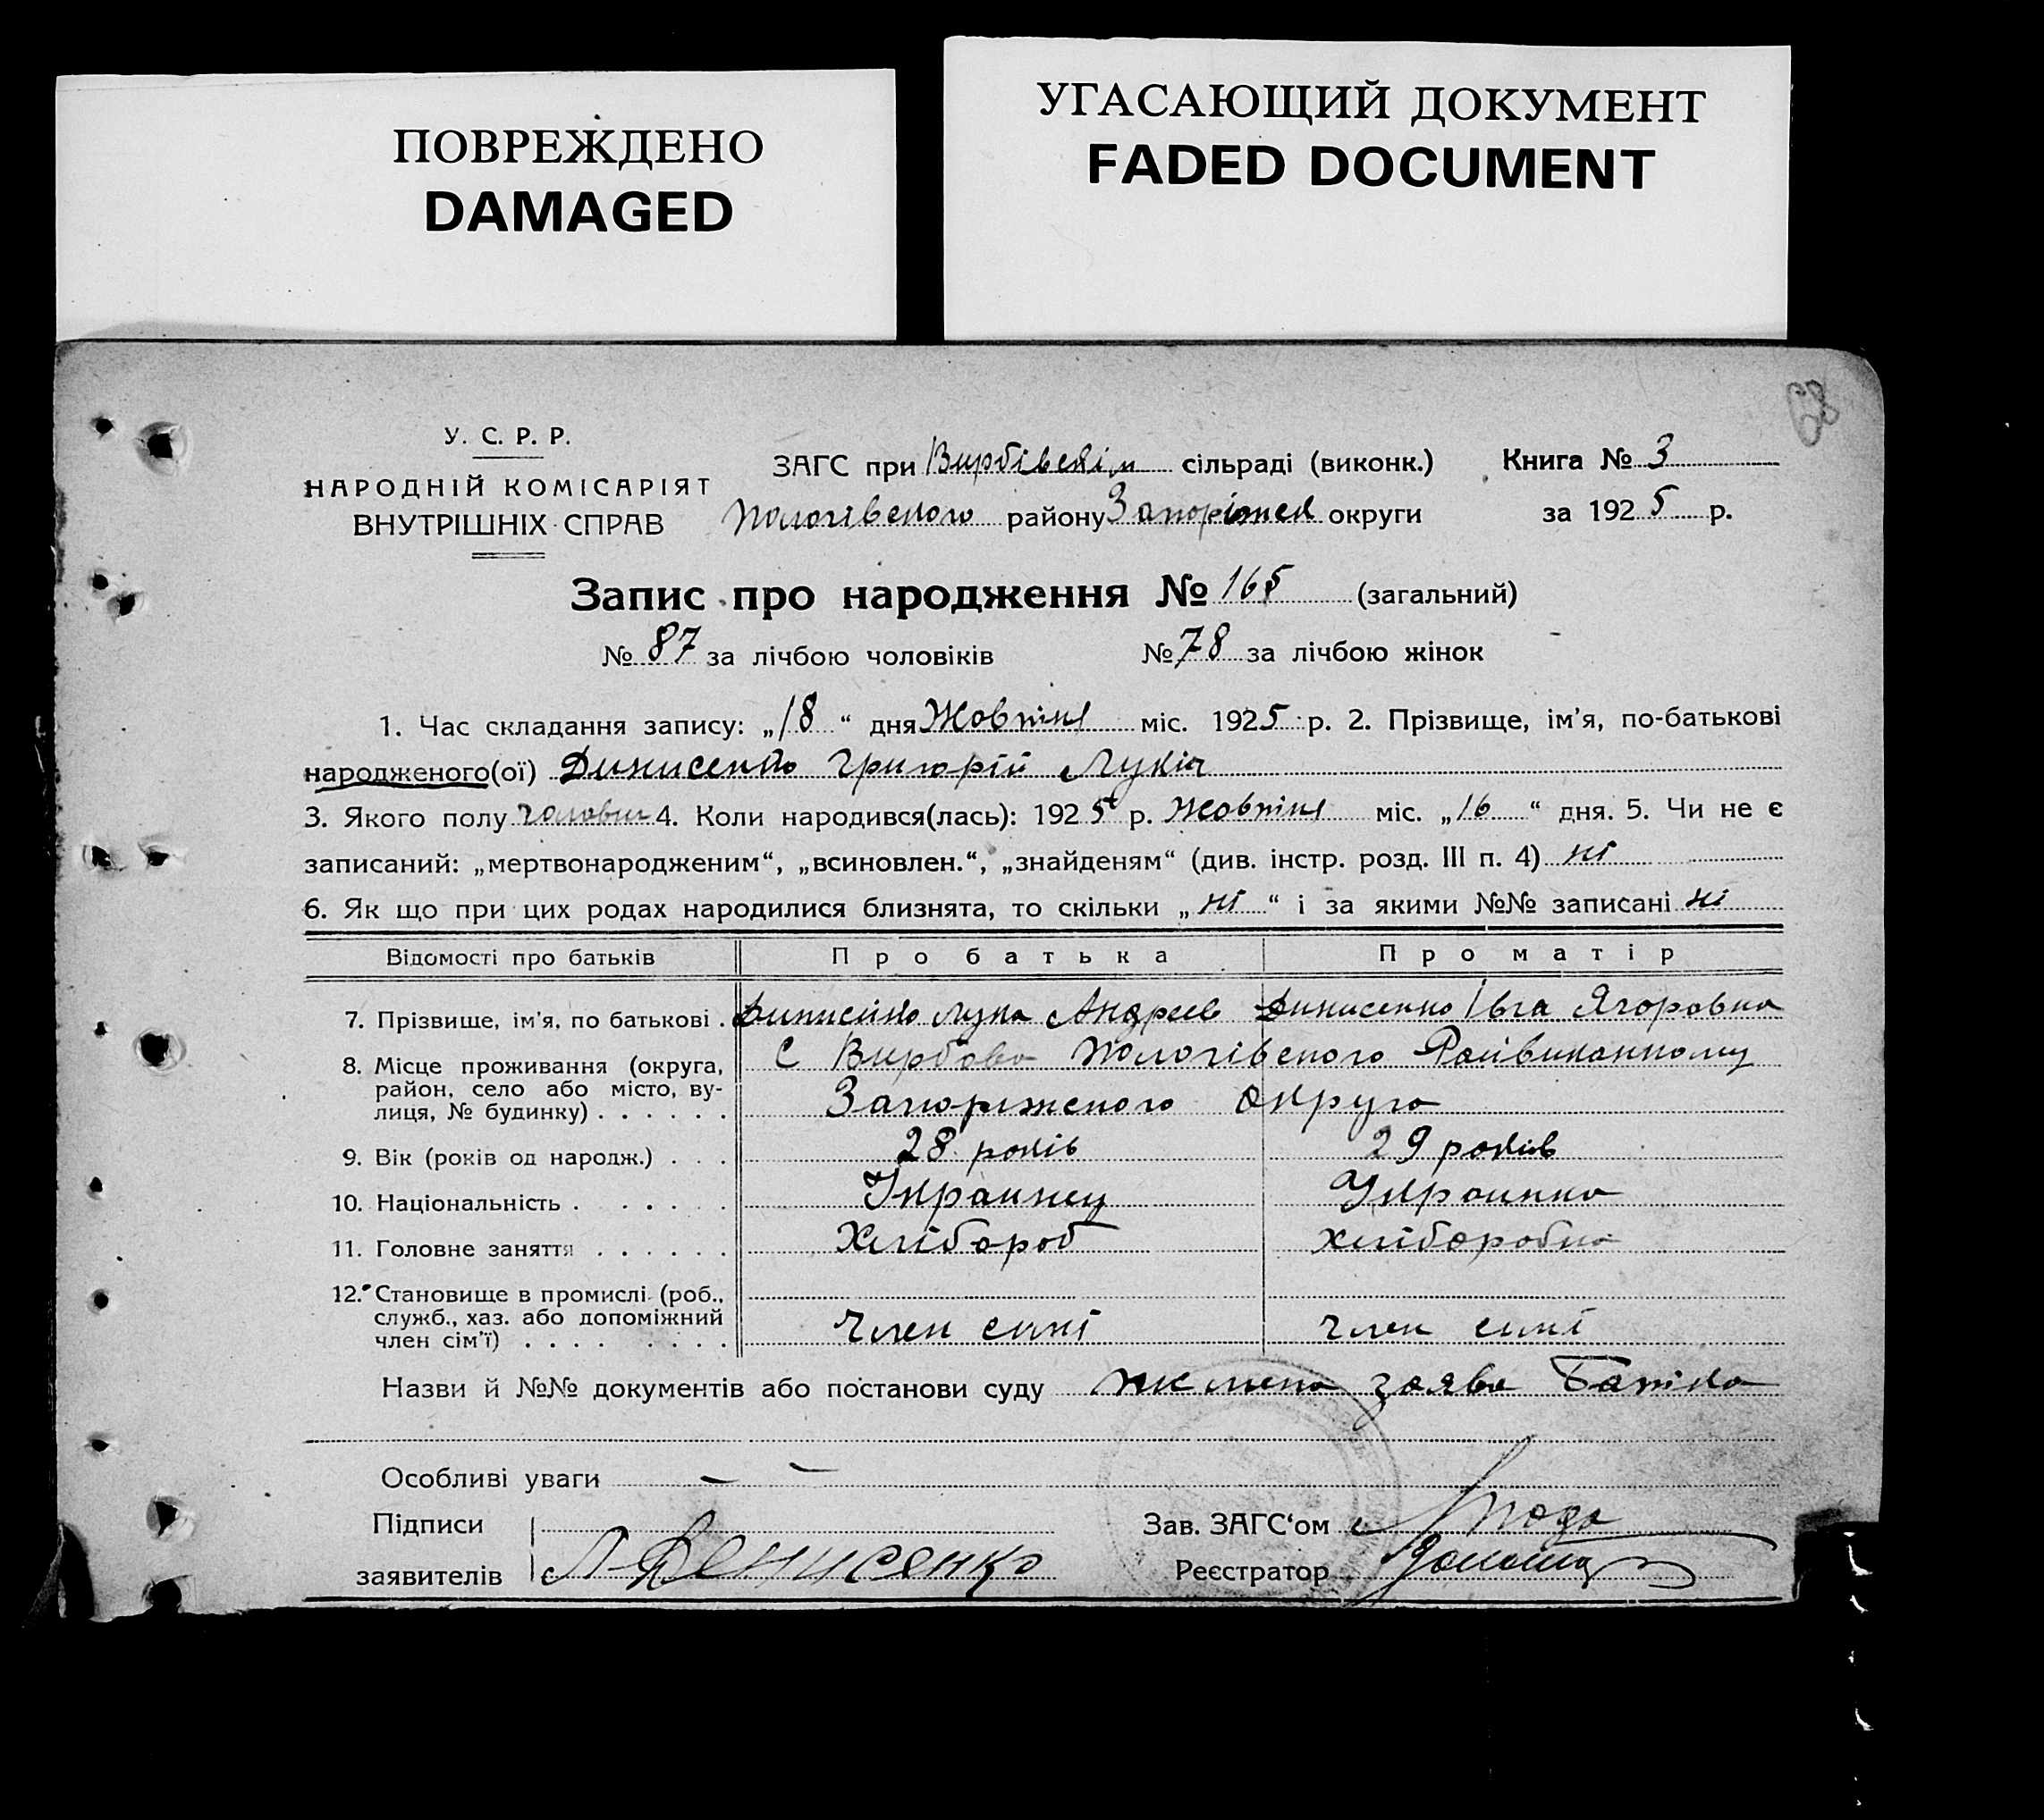 ПОВРЕЖДЕНО
DAMAGED
УГАСАЮЩИЙ ДОКУМЕНТ
FADED DOCUMENT
68
У. С. Р. Р.
НАРОДНІЙ КОМІСАРІЯТ
ВНУТРІШНІХ СПРАВ
ЗАГС при Вирбівскім сільраді (виконк.) Книга № 3
Пологівского району Запоріжск округи за 1925 р.
Запис про народження № 165 (загальний)
№ 87 за лічбою чоловіків № 78 за лічбою жінок
1. Час складання запису: „18“ дня Жовтня міс. 1925 р. 2. Прізвище, ім'я, по-батькові
народженого(ої) Динисенко Григорій Лукіч
3. Якого полу чолович 4. Коли народився(лась): 1925 р. Жовтня міс. „16“ дня. 5. Чи не є
записаний: „мертвонародженим“, „всиновлен.“, „знайденям“ (див. інстр. розд. III п. 4) ні
6. Як що при цих родах народилися близнята, то скільки „ні“ і за якими №№ записані ні
Відомості про батьків Про батька Про матір
7. Прізвище, ім'я, по батькові . Динисенко Лука Андреев Динисенко Івга Ягоровна
8. Місце проживання (округа, район, село або місто, ву-лиця, № будинку) . . . . . . С Вирбова Пологівского Райвиканкому
Запоріжского округа
9. Вік (років од народж.) . . . 28 років 29 років
10. Національність . . . . . . Украинец Украинка
11. Головне заняття . . . . . . Хлібороб хліборобка
12. Становище в промислі (роб.,
служб., хаз. або допоміжний
член сім'ї) . . . . . . . . Член симї член симї
Назви й №№ документів або постанови суду заява Батька
Особливі уваги — —
Підписи Зав. ЗАГС'ом
заявителів Л Денисенко Реєстратор